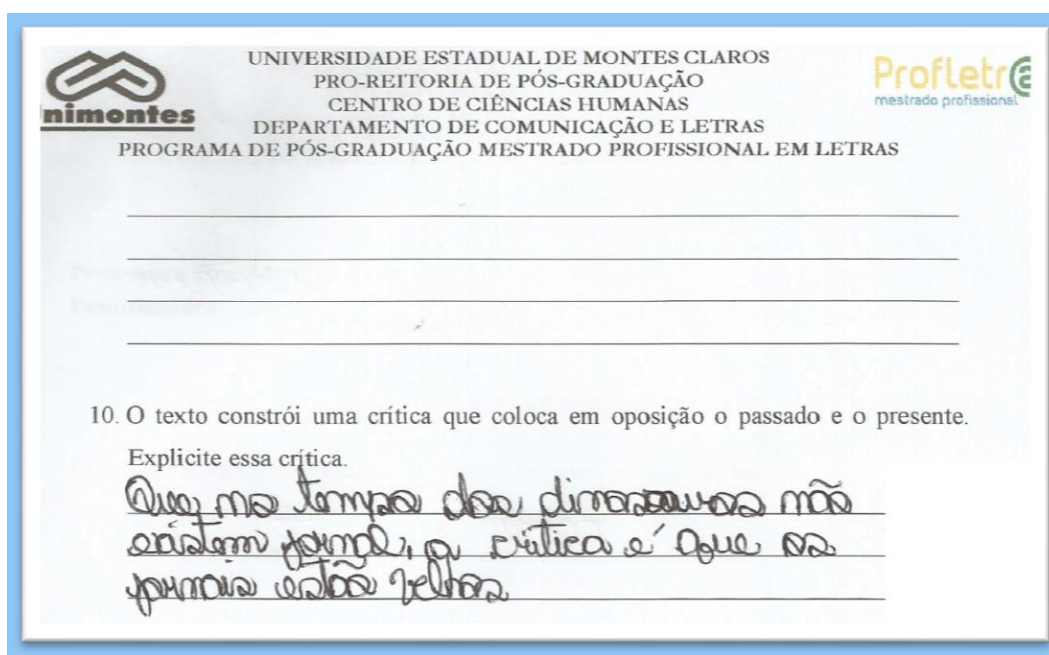 UNIVERSIDADE ESTADUAL DE MONTES CLAROS
PRO-REITORIA DE PÓS-GRADUAÇÃO
CENTRO DE CIÊNCIAS HUMANAS
DEPARTAMENTO DE COMUNICAÇÃO E LETRAS
PROGRAMA DE PÓS-GRADUAÇÃO MESTRADO PROFISSIONAL EM LETRAS
nimontes
Profletr@
mestrado profissional
10. O texto constrói uma crítica que coloca em oposição o passado e o presente.
Explicite essa crítica.
Que no tempo dos dinossauros não
existem jornal, a critica é que os
jornais estão velhos